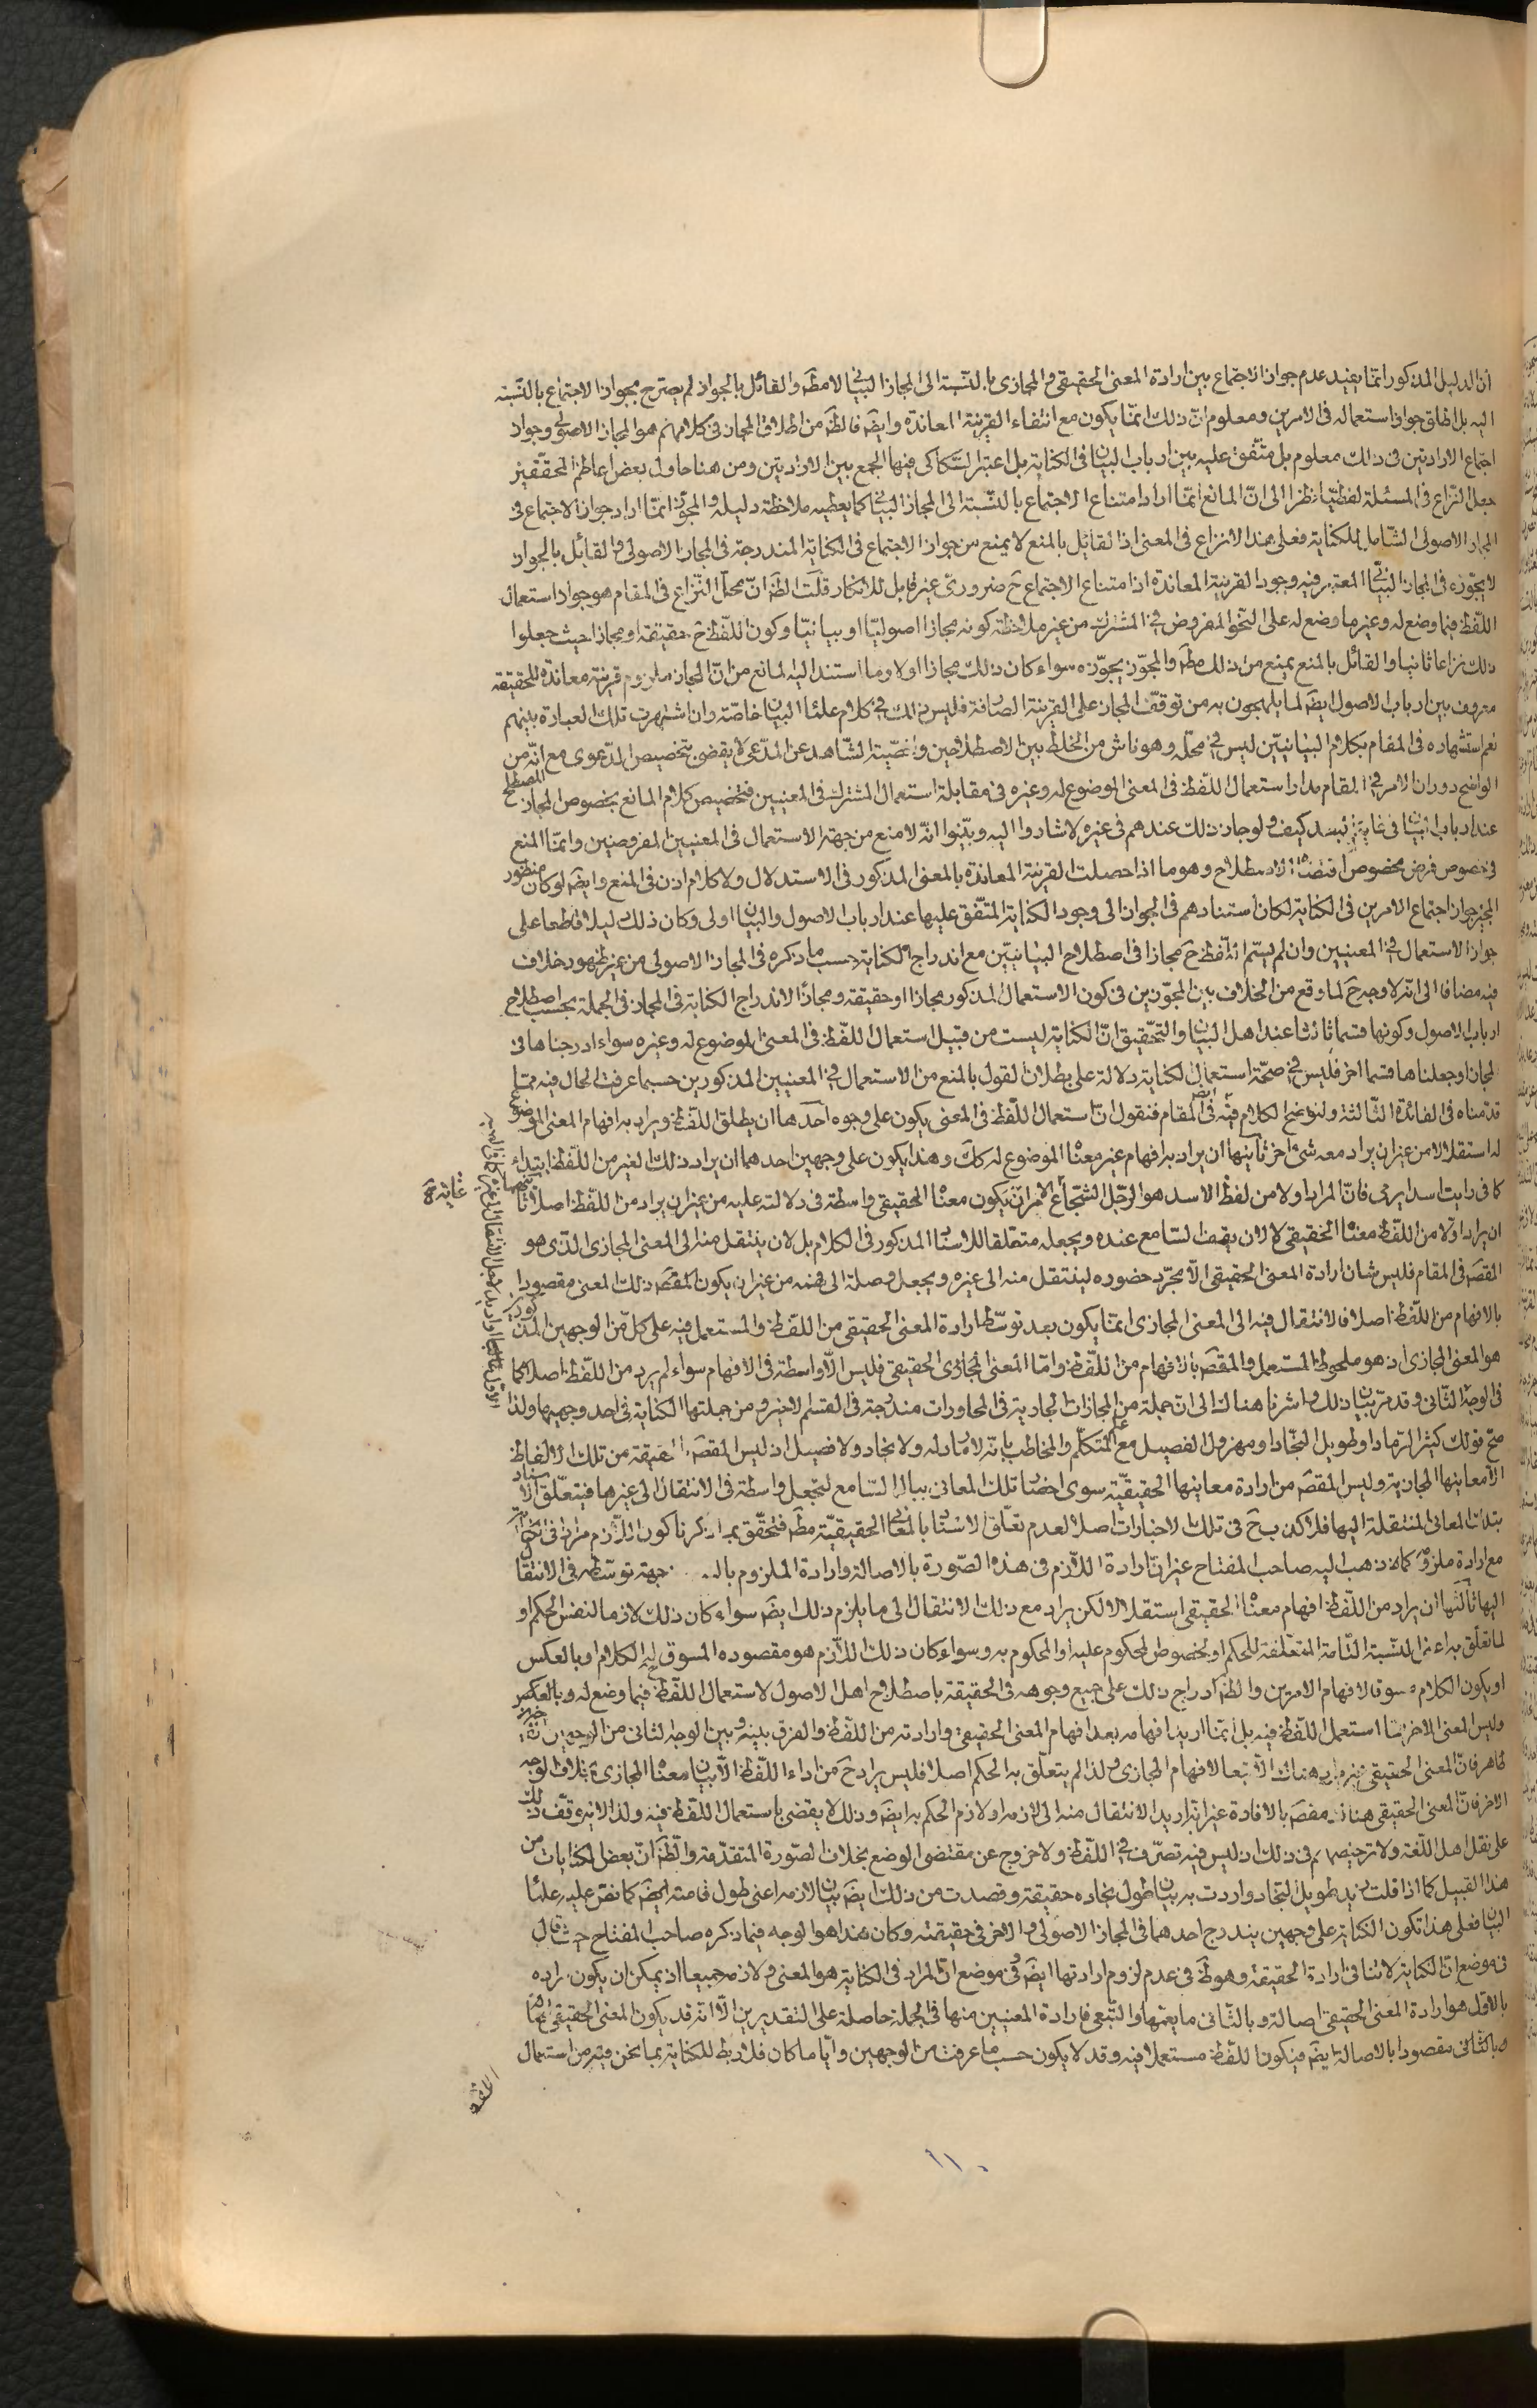 ان الدليل المذكور انما يفيد عدم جواز الاجتماع بين ارادة المعنى الحقيقى والمجازى بالنسبة الى المجاز البيانى لا مطم والقائل بالجواز لم يصرح بجواز الاجتماع بالنسبة
اليه بل اطلق جواز استعماله فى الامرين ومعلوم ان ذلك انما يكون مع انتفاء القرينة المعاندة وايضم فالظم من اطلاق المجاز فى كلامهم هو المجاز الاصولى وجواز
اجتماع الارادتين فى ذلك معلوم بل متفق عليه بين ارباب البيان فى الكناية بل اعتبر السكاكى فيها الجمع بين الارادتين ومن هنا حاول بعض اعاظم المحققين
جعل النزاع فى المسئلة لفظيا نظرا الى ان المانع انما اراد امتناع الاجتماع بالنسبة الى المجاز البيانى كما يعطيه ملاحظة دليله والمجوز انما اراد جواز الاجتماع فى
المجاز الاصولى الشامل للكناية فعلى هذا لا نزاع فى المعنى اذ القائل بالمنع لا يمنع من جواز الاجتماع فى الكناية المندرجة فى المجاز الاصولى والقائل بالجواز
لا يجوزه فى المجاز البيانى المعتبر فيه وجود القرينة المعاندة اذ امتناع الاجتماع ح ضرورى غير قابل للانكار قلت الظم ان محل النزاع فى المقام هو جواز استعمال
اللفظ فيما وضع له وغير ما وضع له على النحو المفروض فى المشترك من غير ملاحظة كونه مجازا اصوليا او بيانيا وكون اللفظ ح حقيقة او مجازا حيث جعلوا
ذلك نزاعا ثانيا والقائل بالمنع يمنع من ذلك مطم والمجوز يجوزه سواء كان ذلك مجازا اولا وما استند اليه المانع من ان المجاز ملزوم قرينة معاندة للحقيقة
معروف بين ارباب الاصول ايضم لما يلهجون به من توقف المجاز على القرينة الصارفة فليس ذلك فى كلام علماء البيان خاصة وان اشتهرت تلك العبارة بينهم
نعم استشهاده فى المقام بكلام البيانيين ليس فى محله وهو ناش من الخلط بين الاصطلاحين واخصية الشاهد عن المدعى لا يقضى بتخصيص المدعوى مع انه من
الواضح دوران الامر فى المقام مدار استعمال اللفظ فى المعنى الموضوع له وغيره فى مقابلة استعمال المشترك فى المعنيين فتخصيص كلام المانع بخصوص المجاز المصطلح
عند ارباب البيان فى غاية البعد كيف ولو جاز ذلك عندهم فى غيره لاشاروا اليه وبينوا انه لا منع من جهة الاستعمال فى المعنيين المفروضين وانما المنع
فى خصوص فرض مخصوص اقتضاه الاصطلاح وهو ما اذا حصلت القرينة المعاندة بالمعنى المذكور فى الاستدلال ولا كلام اذن فى المنع وايضم لو كان منظور
المجيز جواز اجتماع الامرين فى الكناية لكان استنادهم فى الجواز الى وجود الكناية المتفق عليها عند ارباب الاصول والبيان اولى وكان ذلك دليلا قاطعا على
جواز الاستعمال فى المعنيين وان لم يسم اللفظ ح مجازا فى اصطلاح البيانيين مع اندراج الكناية حسب ما ذكره فى المجاز الاصولى من غير ظهور خلاف
فيه مضافا الى انه لا وجه ح لما وقع من الخلاف بين المجوزين فى كون الاستعمال المذكور مجازا او حقيقة ومجازا لاندراج الكناية فى المجاز فى الجملة بحسب اصطلاح
ارباب الاصول وكونها قسما ثالثا عند اهل البيان والتحقيق ان الكناية ليست من قبيل استعمال اللفظ فى المعنى الموضوع له وغيره سواء ادرجناها فى
المجاز او جعلناها قسما اخر فليس فى صحة استعمال الكناية دلالة على بطلان القول بالمنع من الاستعمال فى المعنيين المذكورين حسبما عرفت الحال فيه مما
قدمناه فى الفائدة الثالثة ولنوضح الكلام فيه فى المقام ايضم فنقول ان استعمال اللفظ فى المعنى يكون على وجوه احدها ان يطلق اللفظ ويراد به افهام المعنى الموضوع
له استقلالا من غير ان يراد معه شئ اخر ثانيها ان يراد به افهام غير معناه الموضوع له كك وهذا يكون على وجهين احدهما ان يراد ذلك الغير من اللفظ ابتداء
كما فى رايت اسدا يرمى فان المراد اولا من لفظ الاسد هو الرجل الشجاع الا ان يكون معناه الحقيقى واسطة فى دلالته عليه من غير ان يراد من اللفظ اصلا ثانيهما
ان يراد اولا من اللفظ معناه الحقيقى لا لان يقف السامع عنده ويجعله متعلقا للاسناد المذكور فى الكلام بل لان ينتقل منه الى المعنى المجازى الذى هو
المقصم فى المقام فليس شان ارادة المعنى الحقيقى الا مجرد حضوره لينتقل منه الى غيره ويجعل وصلة الى فهمه من غير ان يكون المقصم ذلك المعنى مقصودا
بالافهام من اللفظ اصلا فالانتقال فيه الى المعنى المجازى انما يكون بعد توسط ارادة المعنى الحقيقى من اللفظ والمستعمل فيه على كل من الوجهين المذكورين
هو المعنى المجازى اذ هو ملحوظ المستعمل والمقصم بالافهام من اللفظ واما المعنى الحقيقى فليس الا واسطة فى الافهام سواء لم يرد من اللفظ اصلا كما
فى الوجه الثانى وقد مر بيان ذلك واشرنا هناك الى ان جملة من المجازات الجارية فى المحاورات مندرجة فى القسم الاخير ومن جملتها الكناية فى احد وجهيها ولذا
صح قولك كثير الرماد او طويل النجاد او مهزول الفصيل مع علم المتكلم والمخاطب بانه لا رماد له ولا نجاد ولا فصيل اذ ليس المقصم الحقيقة من تلك الالفاظ
الا معانيها المجازية وليس المقصم من ارادة معاينها الحقيقية سوى احضار تلك المعانى ببال السامع لتجعل واسطة فى الانتقال الى غيرها فيتعلق الاسناد
بتلك المعانى المنتقلة اليها فلا كذب ح فى تلك الاخبارات اصلا لعدم تعلق الاسناد بالمعانى الحقيقية مطم فتحقق بما ذكرنا كون اللازم مرادا فى الكناية
مع ارادة ملزومه كما ذهب اليه صاحب المفتاح غير ان ارادة اللازم فى هذه الصورة بالاصالة وارادة الملزوم بال‍ جهة توسطه فى الانتقال
اليها ثالثها ان يراد من اللفظ افهام معناه الحقيقى استقلالا لكن يراد مع ذلك الانتقال الى ما يلزم ذلك ايضم سواء كان ذلك لازما لنفس الحكم او
لما تعلق به اعنى النسبة التامة المتعلقة للحكم او لخصوص المحكوم عليه او المحكوم به وسواء كان ذلك اللازم هو مقصوده المسوق له الكلام او بالعكس
او يكون الكلام مسوقا لافهام الامرين والظم ادراج ذلك على جميع وجوهه فى الحقيقة باصطلاح اهل الاصول لاستعمال اللفظ فيما وضع له وبالعكس
وليس المعنى الاخر مما استعمل اللفظ فيه بل انما اريد افهامه بعد افهام المعنى الحقيقى وارادته من اللفظ والفرق بينه وبين الوجه الثانى من الوجهين
ظاهر فان المعنى الحقيقى غير مراد هناك الا تبعا لافهام المجازى ولذا لم يتعلق به الحكم اصلا فليس يراد ح من اداء اللفظ الا بيان معناه المجازى بخلاف الوجه
الاخر فان المعنى الحقيقى هناك مقصم بالافادة غير انه اريد الانتقال منه الى لازمه او لازم الحكم به ايضم وذلك لا يقضى باستعمال اللفظ فيه ولذا لا يتوقف ذلك
على نقل اهل اللغة ولا ترخيصهم فى ذلك اذ ليس فيه تصرف فى اللفظ ولا خروج عن مقتضى الوضع بخلاف الصورة المتقدمة والظم ان بعض الكنايات من
هذا القبيل كما اذا قلت زيد طويل النجاد واردت به بيان طول نجاده حقيقة وقصدت من ذلك ايضم بيان لازمه اعنى طول قامته ايضم كما نص عليه علماء
البيان فعلى هذا تكون الكناية على وجهين يندرج احدهما فى المجاز الاصولى والاخر فى حقيقته وكان هذا هو الوجه فيما ذكره صاحب المفتاح حيث قال
فى موضع ان الكناية لا تنافى ارادة الحقيقة وهو ظم فى عدم لزوم ارادتها ايضم وفى موضع ان المراد فى الكناية هو المعنى ولازمه جميعا اذ يمكن ان يكون مراده
بالاول هو ارادة المعنى الحقيقى اصالة وبالثانى ما يعمها والتبعى فارادة المعنيين منها فى الجملة حاصلة على التقديرين الا انه قد يكون المعنى الحقيقى
وبالثانى مقصودا بالاصالة ايضم فيكون اللفظ مستعملا فيه وقد لا يكون حسب ما عرفت من الوجهين وايا ما كان فلا ربط للكناية بما نحن فيه من استعمال
اللفظ
١١٠